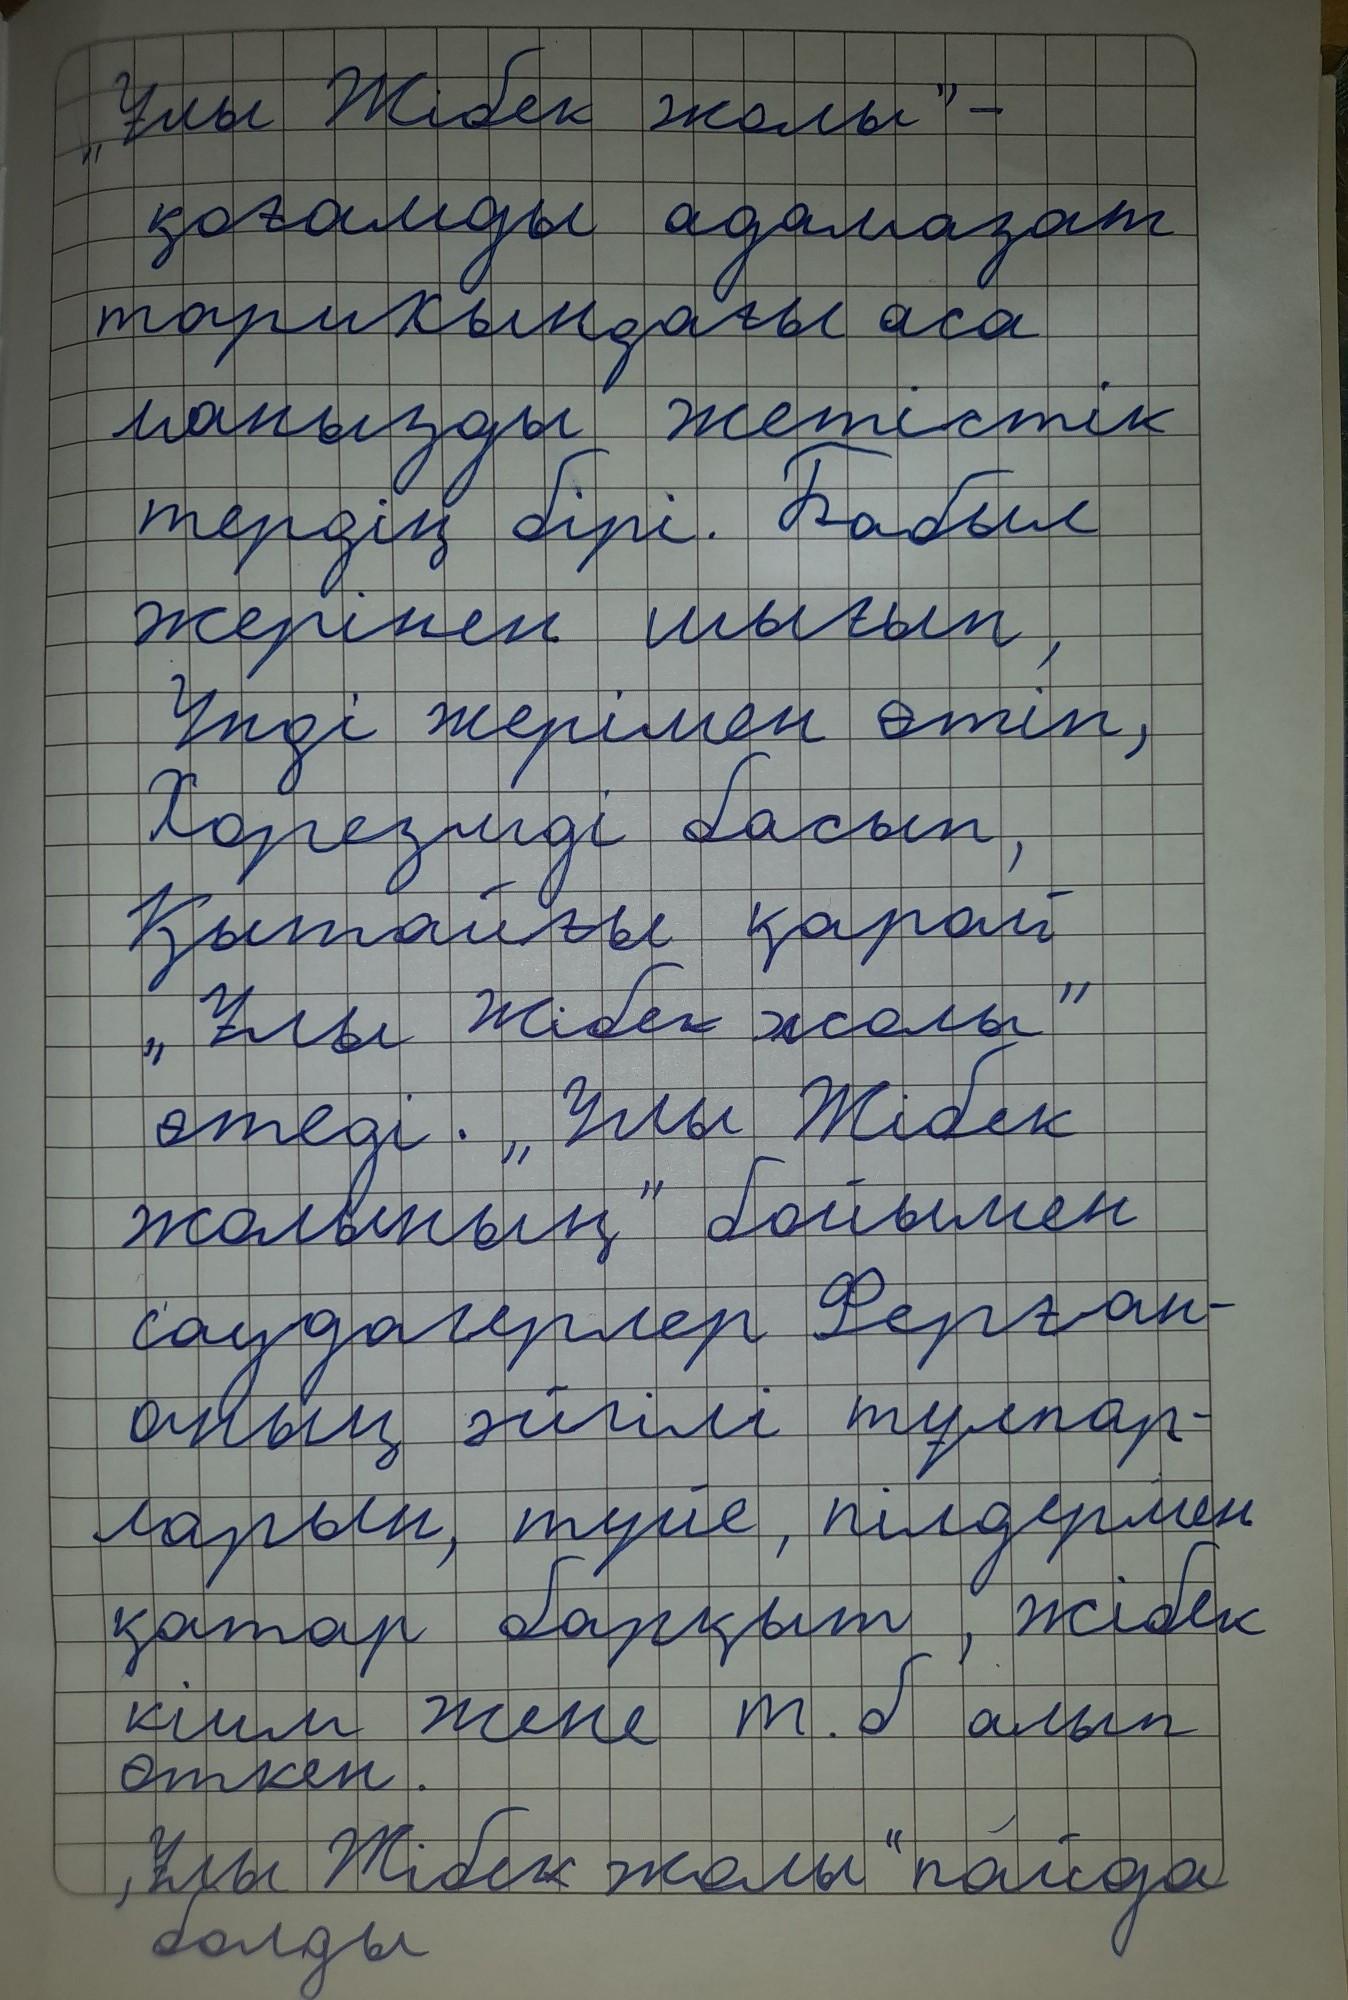 „Ұлы Жібек жолы" –
қоғамды адамазат
тарихындағы аса
манызды жетістік
тердің бірі. Бабыл
жерінен шығып,
Үнді жерімен өтіп,
Хорезмді басып,
Қытайғы қарай
„Ұлы Жібек жолы"
өтеді. „Ұлы Жібек
жолының" бойымен
саудагерлер Ферған-
оның әйгілі тұлпар-
ларын, түйе, пілдермен
қатар барқыт, жібек
кіим жене т.б алып
өткен.
„Ұлы Жібек жолы" пайда
болды